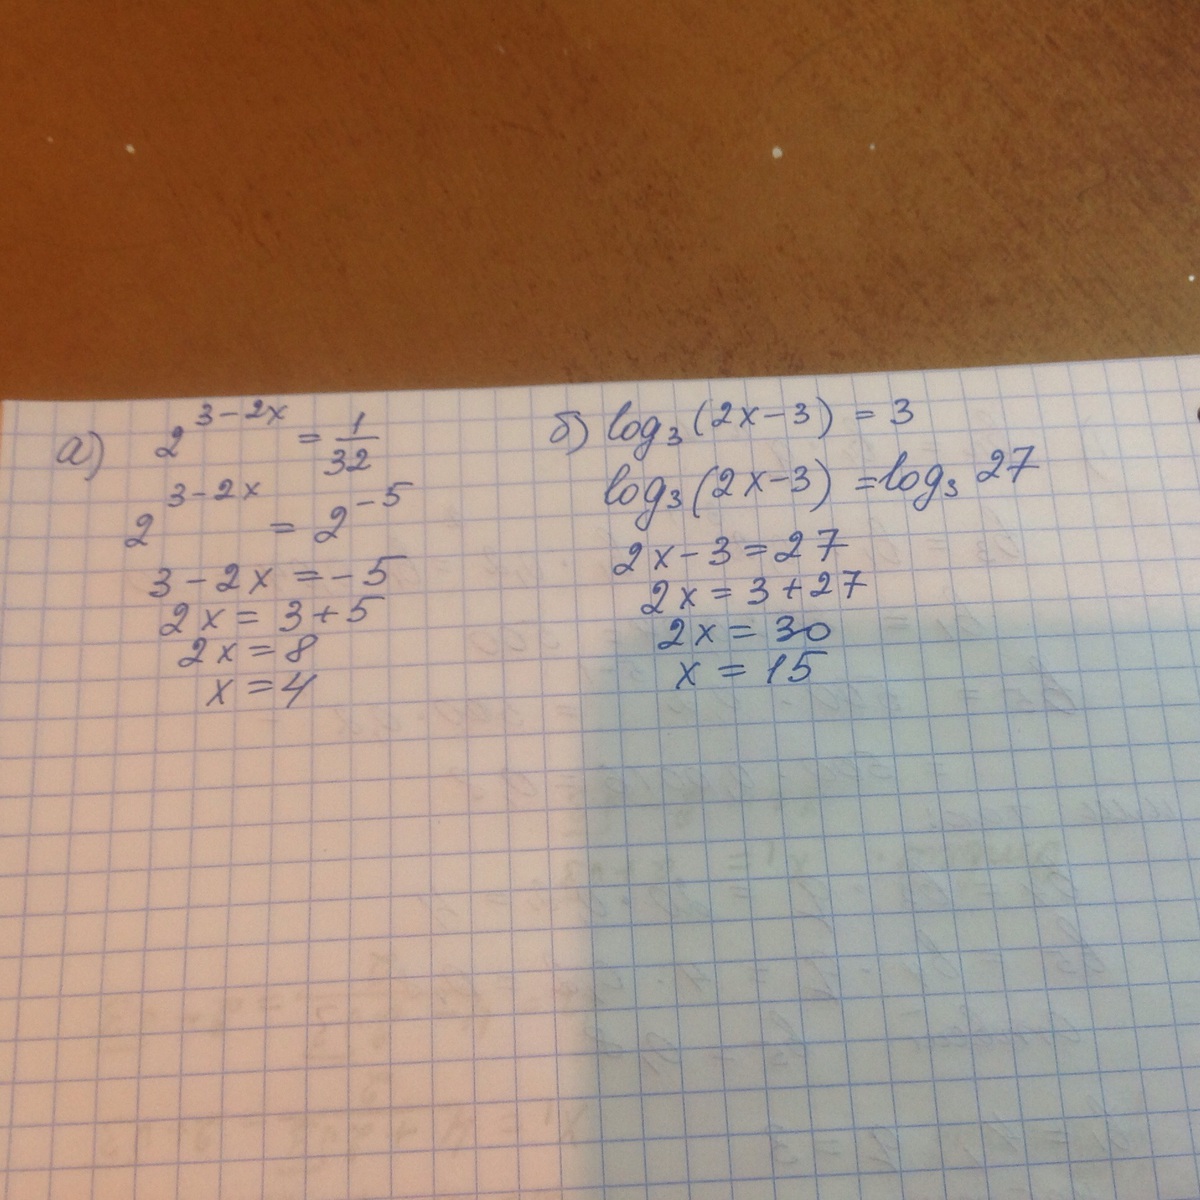 а) 2^{3-2x} = \frac{1}{32}
2^{3-2x} = 2^{-5}
3-2x = -5
2x = 3+5
2x = 8
x = 4
б) log₃(2x-3) = 3
log₃(2x-3) = log₃ 27
2x-3 = 27
2x = 3+27
2x = 30
x = 15